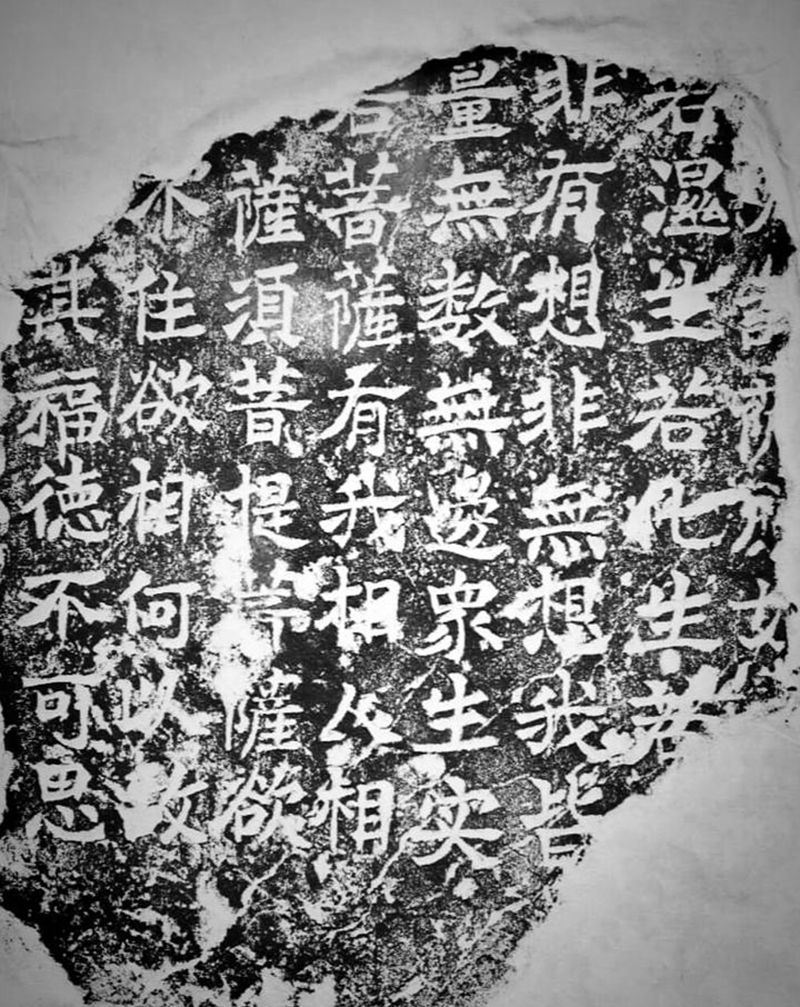 應如
若濕生若化生若
非有想非無想我皆
量無数無邊衆生实
若菩薩有我相人相
薩須菩提菩薩欲
不住欲相何以故
其福德不可思